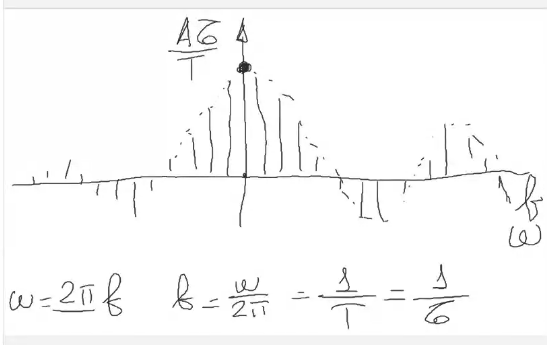 Aτ/T
f
ω
ω = 2π f   f = ω/2π = 1/T = 1/τ